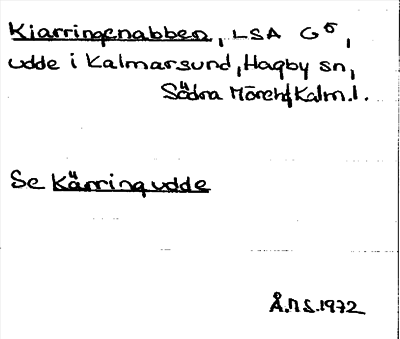 Kiarringenabben, LSA G5,
udde i Kalmarsund, Hagby sn,
Södra Möre hd, Kalm. l.
Se Kärringudde
Å.N.S. 1972